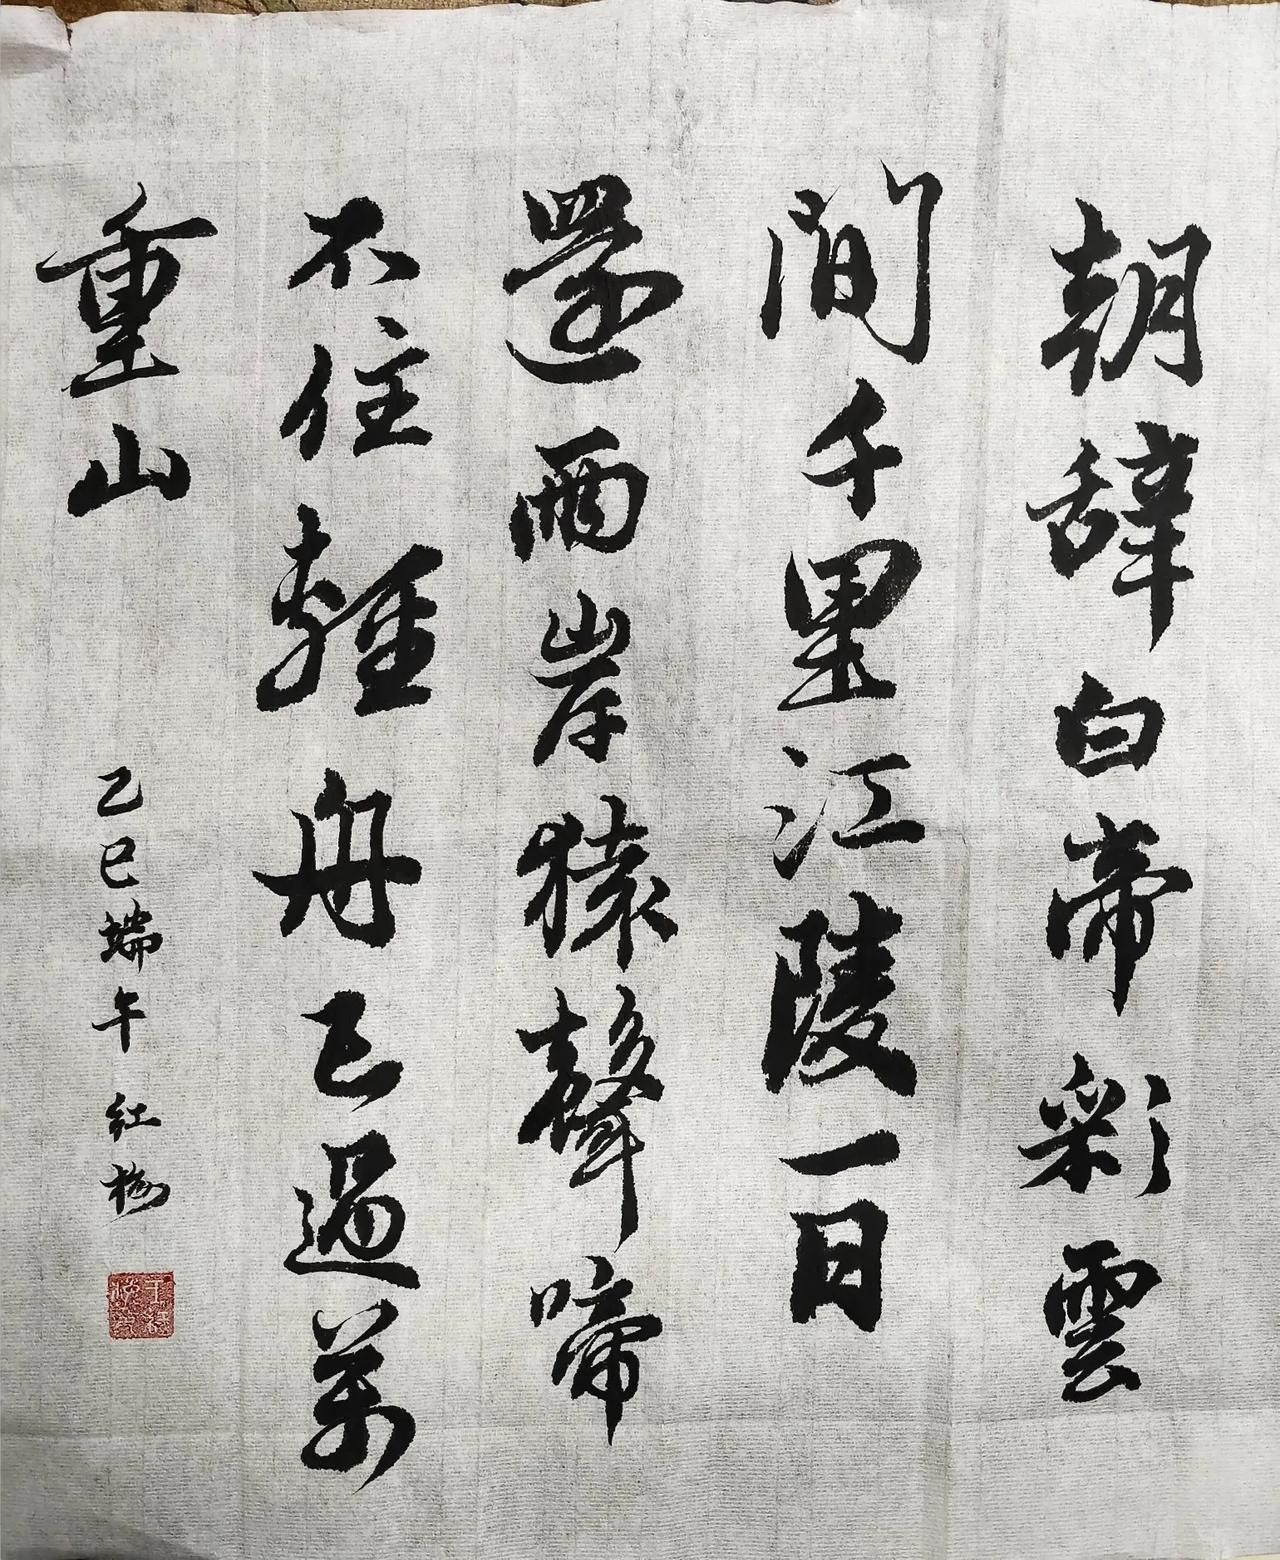 朝辞白帝彩雲
間千里江陵一日
還兩岸猿聲啼
不住輕舟已過萬
重山
乙巳端午 红梅